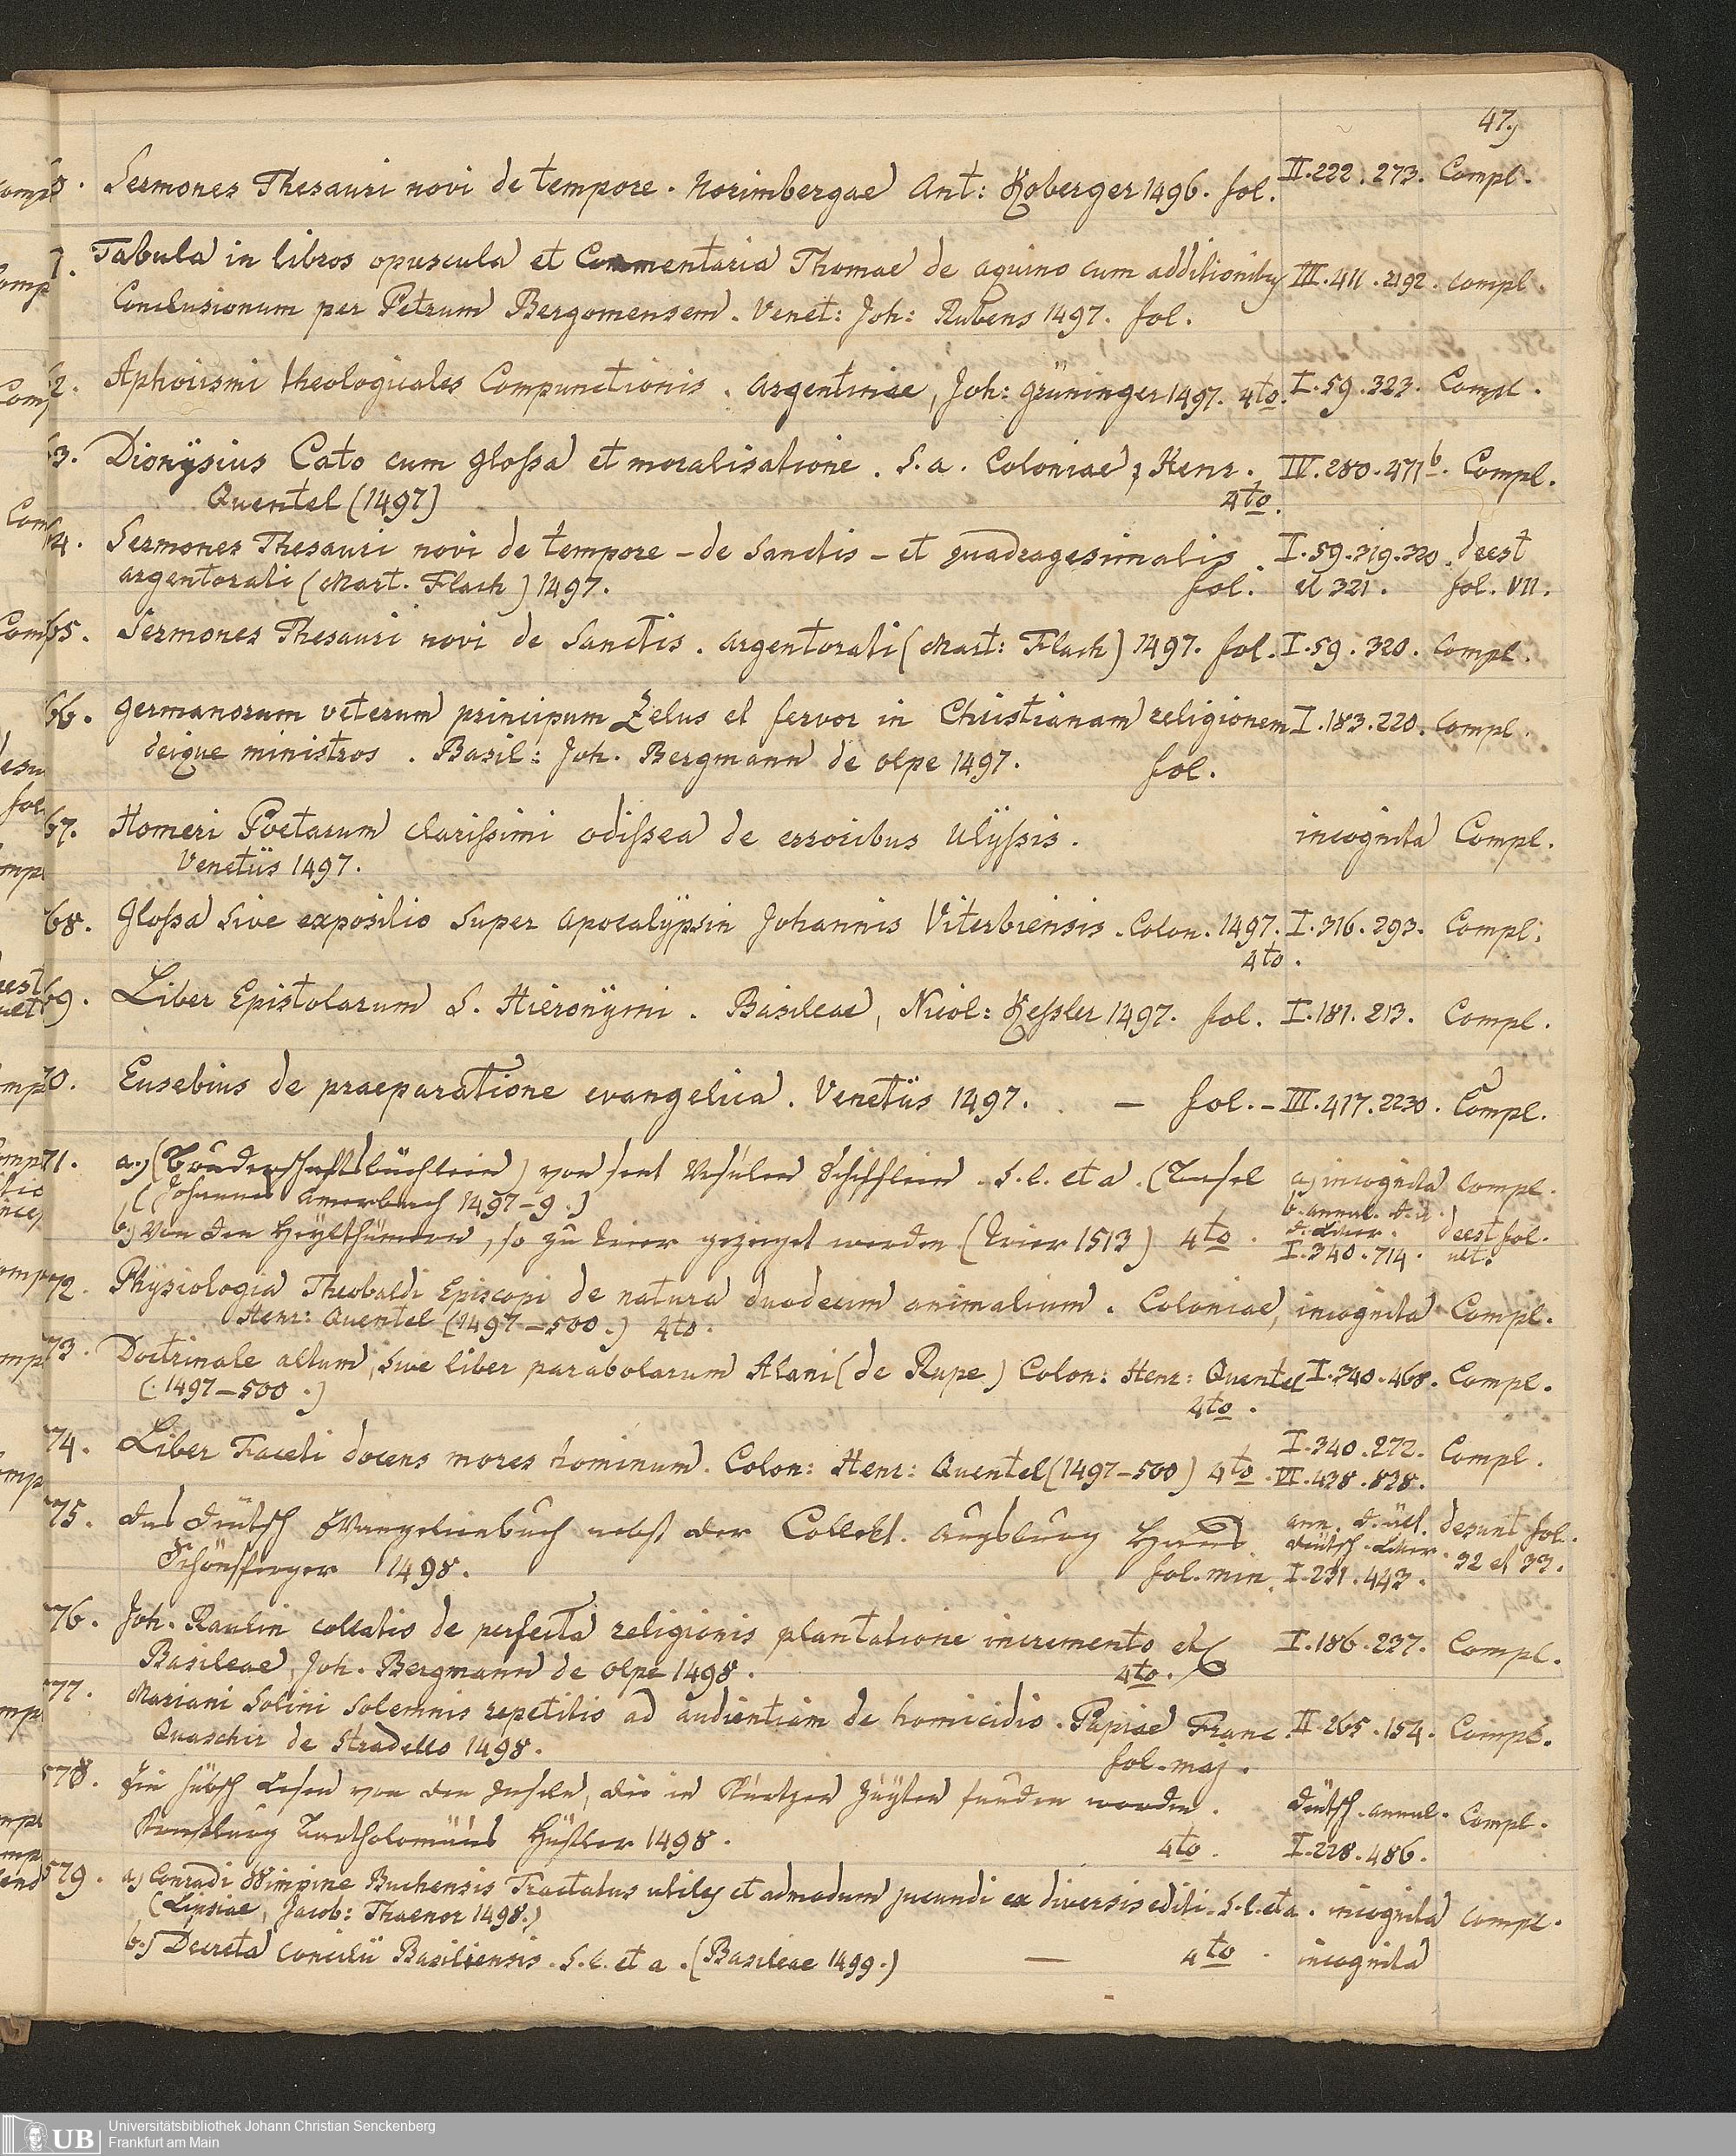 47.
Sermones Thesauri novi de tempore. Norimbergae Ant: Koberger 1496. fol. II.222.273. Compl.
Tabula in libros opuscula et Commentaria Thomae de aquino cum additionibus III.411.2192. compl.
Conclusionum per Petrum Bergomensem. Venet: Joh: Rubens 1497. fol.
2. Aphorismi theologicales Compunctionis. Argentinae, Joh: grüninger 1497. 4to. I.59.323. Compl.
63. Dionÿsius Cato cum glossa et moralisatione. S.a. Coloniae, Henr. IV.280.471b. Compl.
Quentel (1497) 4to.
64. Sermones Thesauri novi de tempore - de Sanctis - et quadragesimalis. I.59.319.320. deest
argentorati (Mart. Flach) 1497. fol. et 321. fol. VII.
65. Sermones Thesauri novi de Sanctis. argentorati (Mart: Flach) 1497. fol. I.59.320. Compl.
66. germanorum veterum principum Zelus et fervor in Christianam religionem I.183.220. Compl.
deique ministros. Basil: Joh. Bergmann de olpe 1497. fol.
67. Homeri Poetarum clarissimi odissea de erroribus Ulÿssis. incognita Compl.
Venetiis 1497.
68. Glossa Sive expositio Super apocalÿpsin Johannis Viterbiensis. Colon. 1497. I.316.293. Compl.
4to.
69. Liber Epistolarum S. Hieronÿmi. Basileae, Nicol: Kessler 1497. fol. I.181.213. Compl.
70. Eusebius de praeparatione evangelica. Venetiis 1497. — fol. - III.417.2230. Compl.
71. a.) (Bruderschaftsbüchlein) von sent Ursulen Schifflein. S.l. et a. (Basel a) incognita compl.
(Johannes Amerbach 1497-9.) b. annal. d. ä.
b.) Von den Heÿlthümern, so zu trier gezeiget werden (Trier 1513) 4to. d. Liter. deest fol.
I.340.714. ult.
72. Phÿsiologia Theobaldi Episcopi de natura duodecim animalium. Coloniae, incognita Compl.
Henr: Quentel (1497-500.) 4to.
73. Doctrinale altum, sive liber parabolarum Alani (de Rupe) Colon: Henr: Quentel I.340.468. Compl.
(.1497-500.) 4to.
74. Liber Faceti docens mores hominum. Colon: Henr: Quentel (1497-500) 4to. I.340.272. Compl.
VI.438.828.
75. das deutsch Evangelienbuch nebst der Collekt. Augsburg Hanns ann. d. ält. desunt fol.
Schönsperger 1498. fol. min. deutsch. Liter. 32 et 33.
I.231.443.
76. Joh. Raulin collatio de perfecta religionis plantatione incremento etc I.186.237. Compl.
Basileae, Joh. Bergmann de olpe 1498. 4to.
77. Mariani Solini Solemnis repetitio ad audientiam de homicidio. Papiae Franc. II.265.154. Compl.
Quaschir de Stradello 1498. fol. maj.
578. Ein hübsch Lesen von den Inseln, die in Kurtzen Zeÿten funden worden. deutsch. annal. Compl.
Strassburg Bartholomäus Küstler 1498. 4to. I.228.486.
579. a) Conradi Wimpine Buchensis Tractatus utiles et admodum jucundi ex diversis editi. S.l. et a. incognita compl.
(Lipsiae, Jacob: Thaenor 1498.)
b.) Decreta Concilii Basiliensis. S.l. et a. (Basileae 1499.) — 4to. incognita
UB
Universitätsbibliothek Johann Christian Senckenberg
Frankfurt am Main